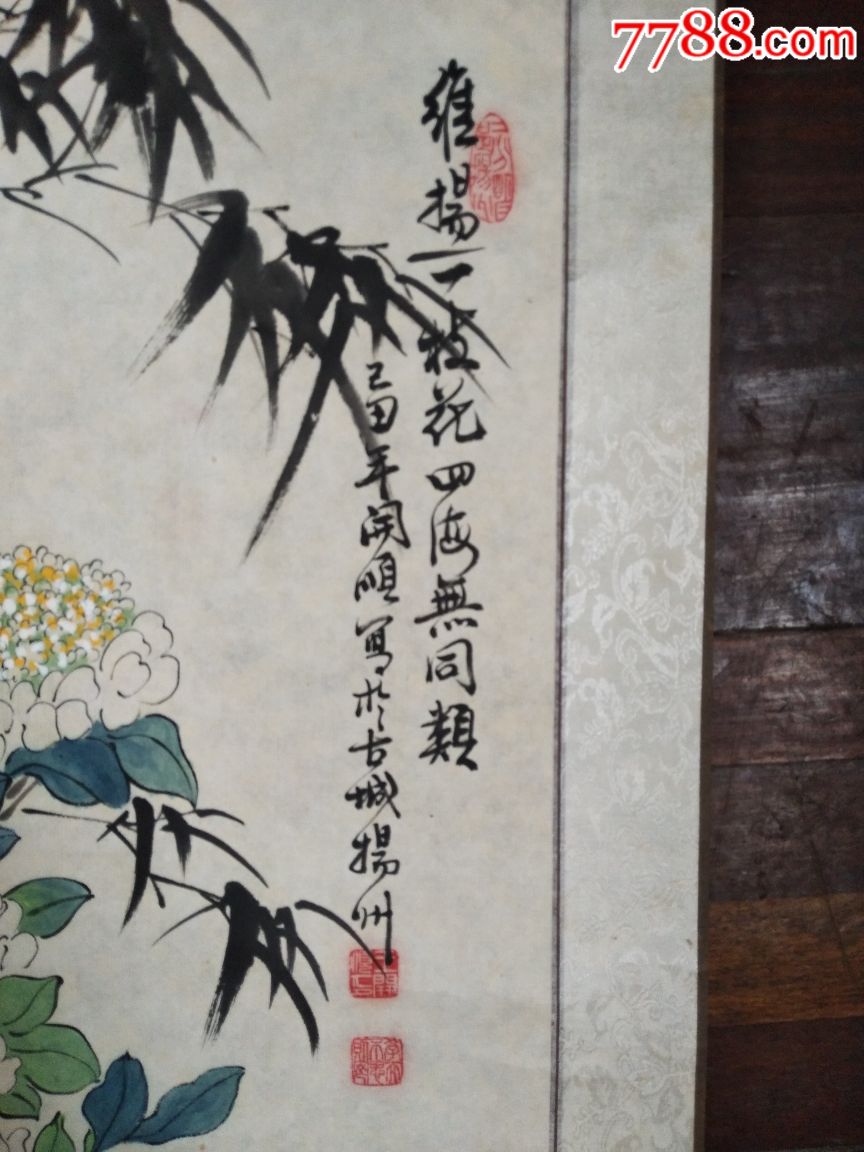 7788.com
維揚一枝花四海無同類
己丑年開順寫於古城揚州